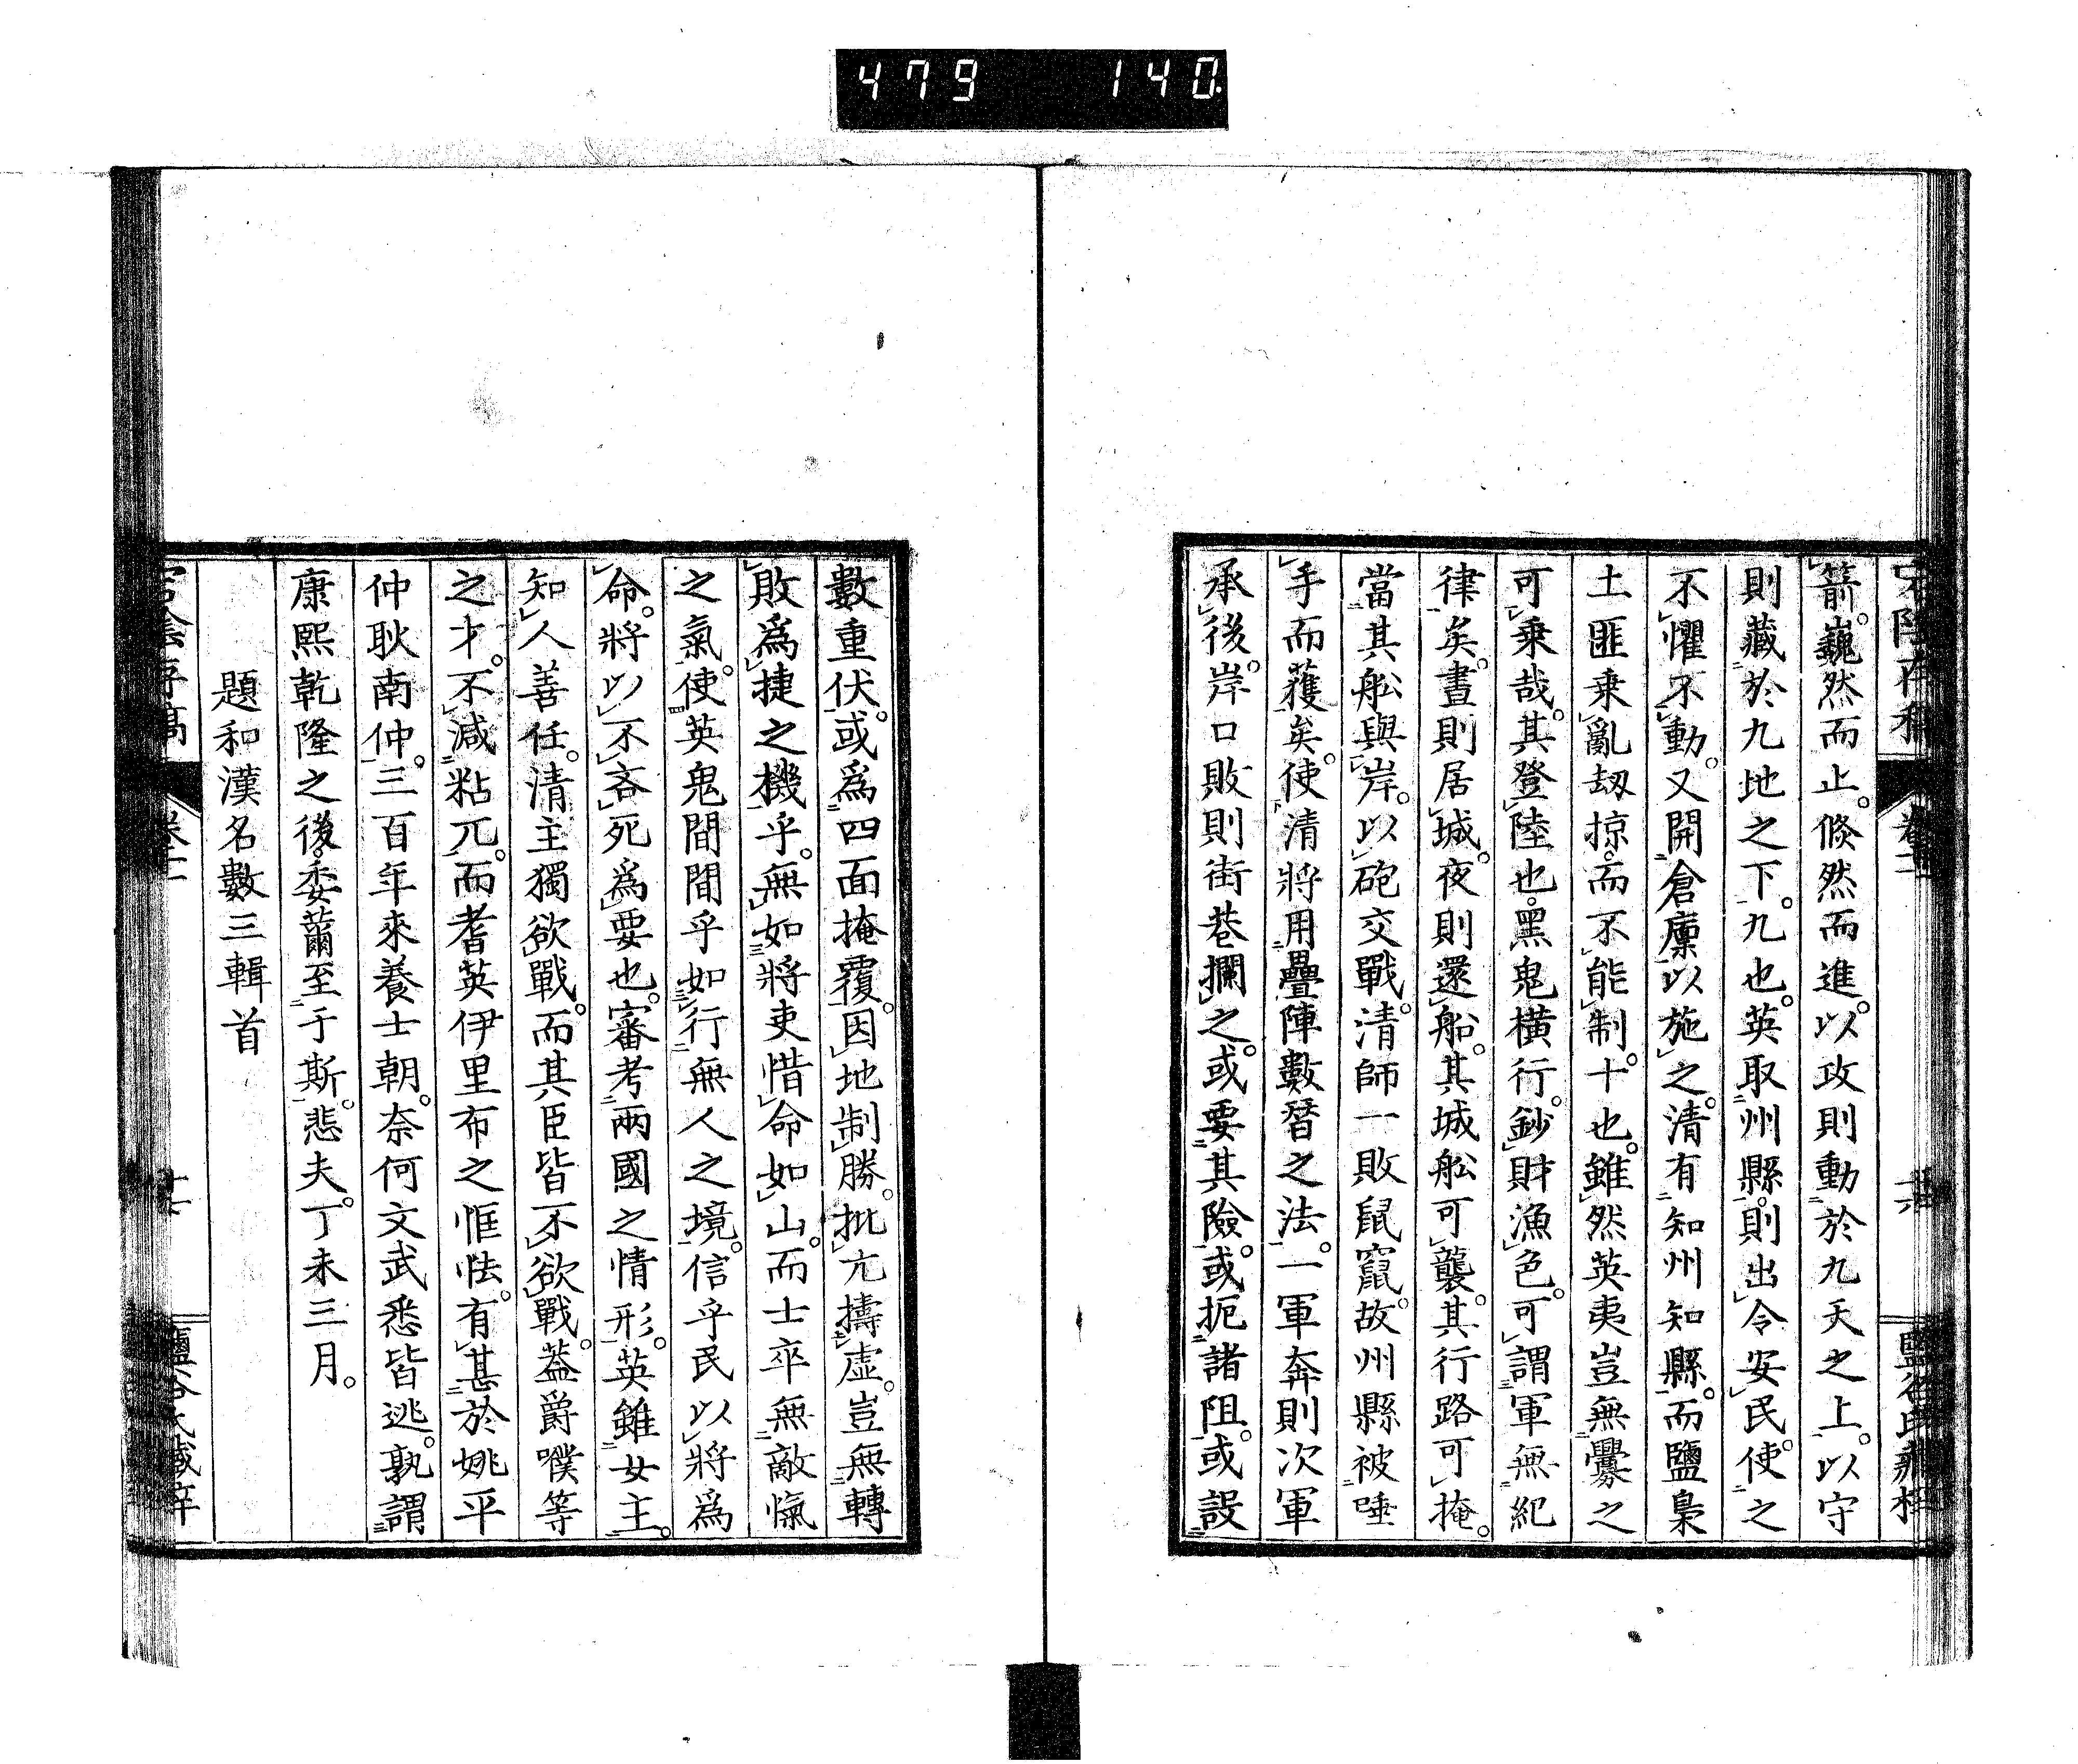 479 140
箭。巍然而止。倏然而進。以攻則動於九天之上。以守
則藏於九地之下。九也。英取州縣。則出令安民。使之
不懼不動。又開倉廩以施之。清有知州知縣。而鹽梟
土匪乘亂劫掠。而不能制。十也。雖然英夷豈無釁之
可乘哉。其登陸也。黑鬼橫行。鈔財漁色。可謂軍無紀
律矣。晝則居城。夜則還船。其城舩可襲。其行路可掩。
當其舩與岸。以砲交戰。清師一敗鼠竄。故州縣被唾
手而獲矣。使清將用疊陣數替之法。一軍奔則次軍
承後。岸口敗則街巷攔之。或要其險。或扼諸阻。或設
數重伏。或爲四面掩覆。因地制勝。批亢擣虛。豈無轉
敗爲捷之機乎。無如將吏惜命如山。而士卒無敵愾
之氣。使英鬼間間乎如行無人之境。信乎民以將爲
命。將以不吝死爲要也。審考兩國之情形。英雖女主。
知人善任。清主獨欲戰。而其臣皆不欲戰。蓋爵噗等
之才。不減粘兀。而耆英伊里布之恇怯。有甚於姚平
仲耿南仲。三百年來養士朝。奈何文武悉皆逃。孰謂
康熙乾隆之後。委薾至于斯。悲夫。丁未三月。
題和漢名數三輯首